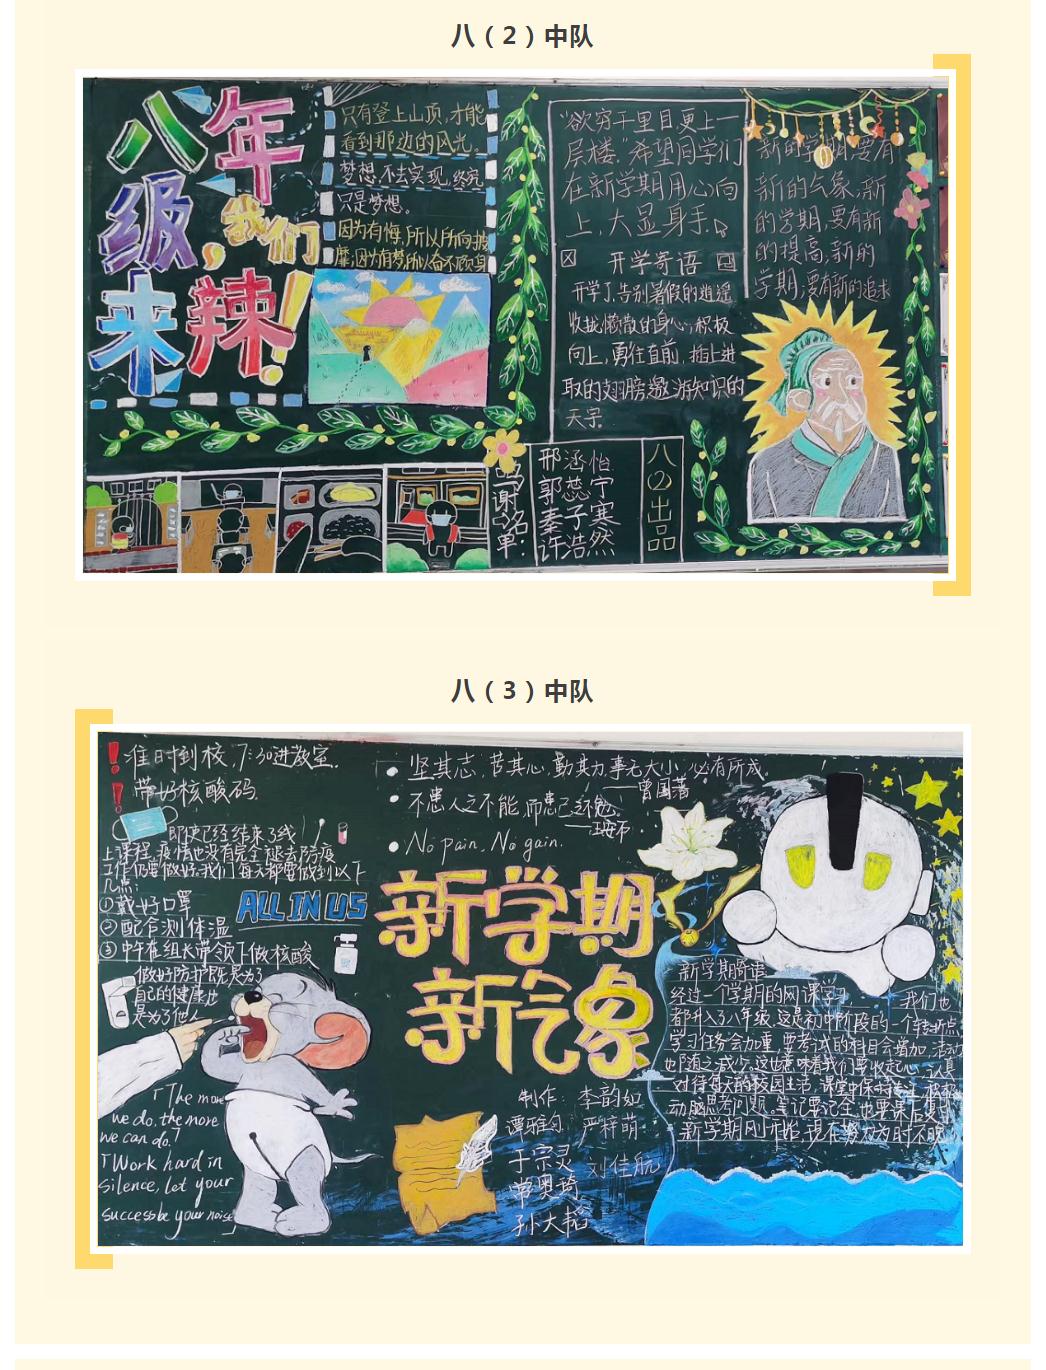 八（2）中队
八年
级,我们
来辣!
只有登上山顶,才能
看到那边的风光。
梦想,不去实现,终究
只是梦想。
因为有悔,所以所向披
靡;因为有梦,所以奋不顾身
“欲穷千里目,更上一
层楼。”希望同学们
在新学期用心向
上,大显身手。
开学寄语
开学了,告别暑假的逍遥
收拢懒散的身心,积极
向上,勇往直前,插上进
取的翅膀,遨游知识的
天宇。
新的学期,要有
新的气象,新
的学期,要有新
的提高,新的
学期,要有新的追求
鸣谢名单:
邢涵怡
郭蕊宁
秦子寒
许浩然
八(2)出品
八（3）中队
!准时到校,7:30进教室.
!带好核酸码.
即使已经结束了线
上课程,疫情也没有完全褪去防疫
工作仍要做好.我们每天都要做到以下
几点:
①戴好口罩
②配合测体温
③中午在组长带领下做核酸
做好防护既是为了
自己的健康也
是为了他人
ALL IN US
「The more
we do, the more
we can do.」
「Work hard in
silence, let your
success be your noise
坚其志,苦其心,勤其力,事无大小,必有所成。
——曾国藩
不患人之不能,而患己之不勉。
——王安石
No pain, No gain.
新学期
新气象
制作: 李韵如
谭雅匀 严梓萌
于宗灵 刘佳航
常奥琦
孙大韬
新学期寄语
经过一个学期的网课学习 我们也
都升入了八年级,这是初中阶段的一个转折点
学习任务会加重,要考试的科目会增加,活动
也随之减少,这也意味着我们要收起心,认真
对待每天的校园生活,课堂中保持专注,积极
动脑思考问题。笔记要记全,也要课后复习
新学期刚开始,现在努力为时不晚